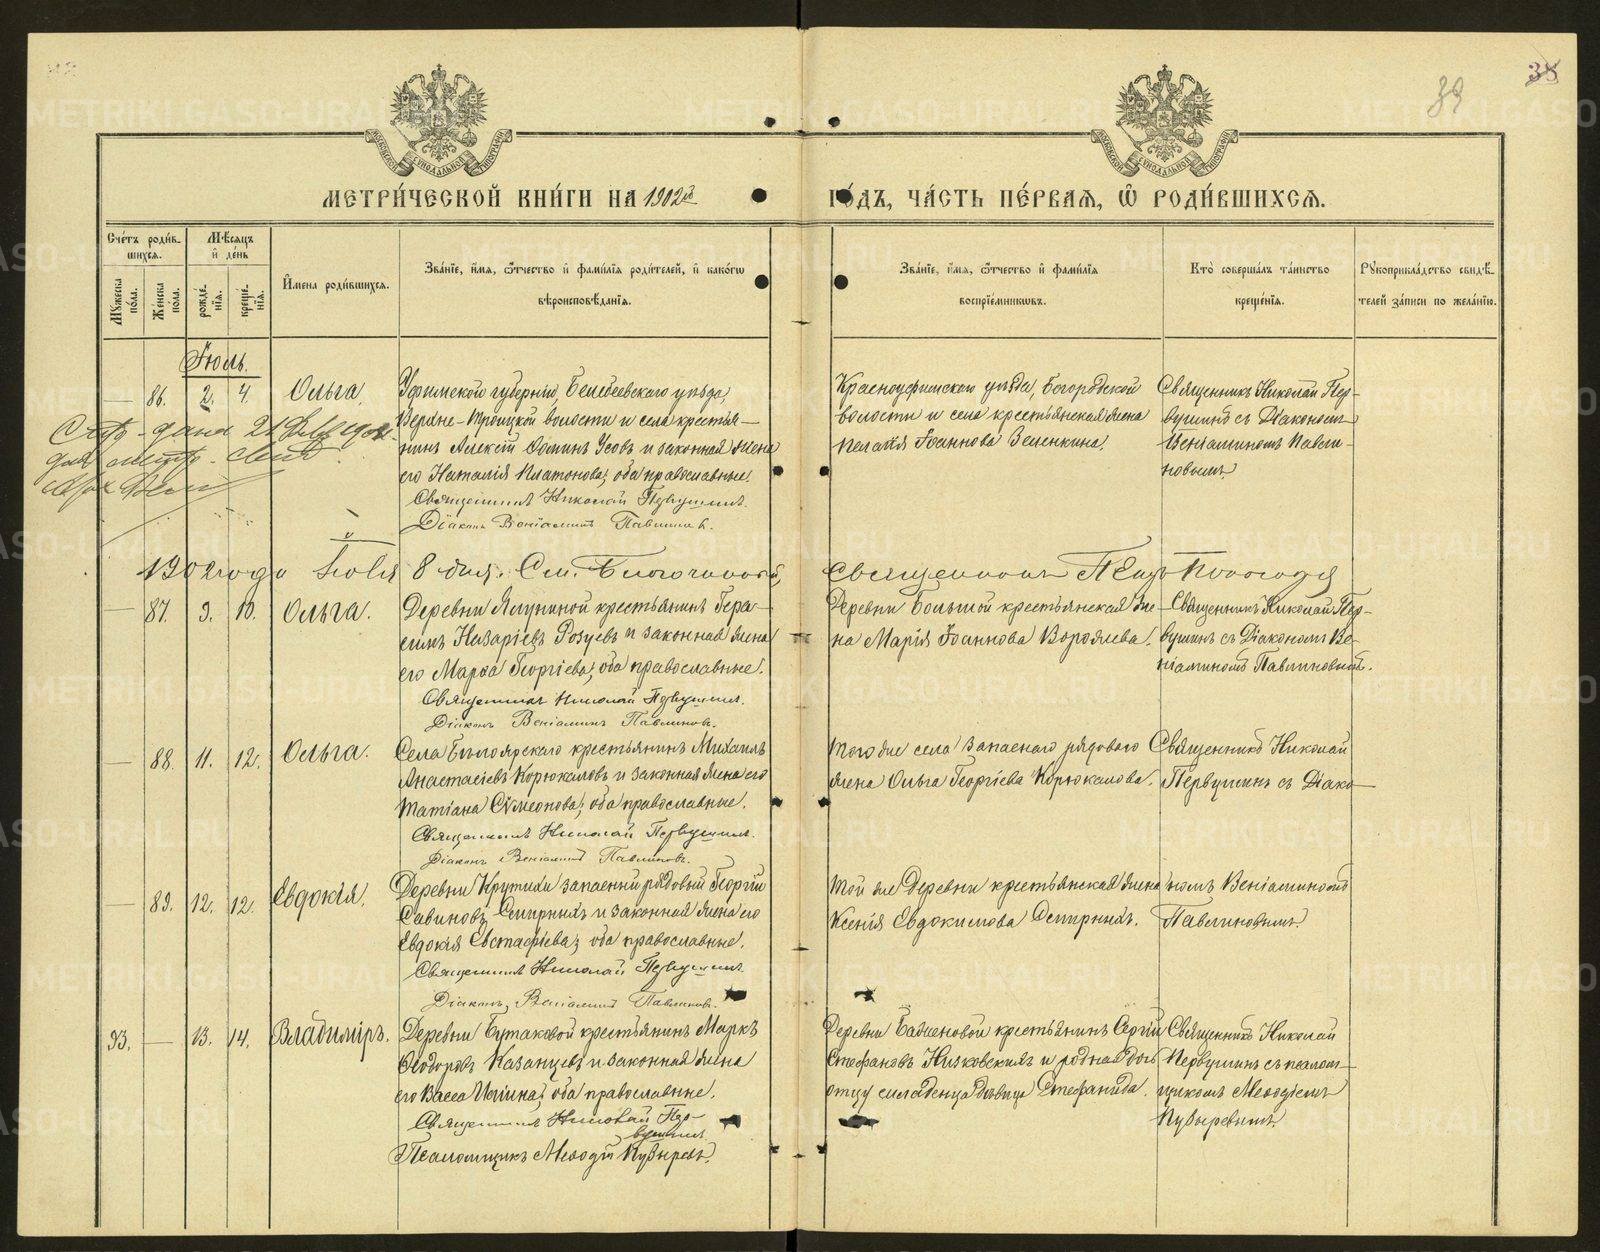 38
39
МЕТРИ́ЧЕСКОЙ КНИ́ГИ НА 1902й ГО́ДЪ, ЧА́СТЬ ПЕ́РВАЯ, Ѿ РОДИ́ВШИХСЯ.
Сче́тъ роди́вшихся.
Мꙋ́жеска по́ла.
Же́нска по́ла.
Мѣ́сяцъ и҆ де́нь
рожде́нїя.
креще́нїя.
И҆мена роди́вшихся.
Зва́нїе, и҆́мя, ѻ҆́тчество и҆ фами́лїя роди́телей, и҆ како́гѡ
вѣроисповѣ́данїя.
Зва́нїе, и҆́мя, ѻ҆́тчество и҆ фами́лїя
воспрїе́мникѡвъ.
Кто̀ соверша́лъ та́инство
креще́нїя.
Рꙋкоприкла́дство свидѣ́-
телей за́писи по жела́нїю.
Іюль.
— 86. 2. 4. Ольга.
Уфимской губерніи, Белебеевскаго уѣзда,
Верхне-Троицкой волости и села крестья-
нинъ Алексій Ѳоминъ Усовъ и законная жена
его Наталія Платонова; оба православные.
Священникъ Николай Первушинъ.
Діаконъ Веніаминъ Павлиновъ.
Красноуфимскаго уѣзда, Богородской
волости и села крестьянская жена
Пелагія Іоаннова Зеленкина.
Священникъ Николай Пер-
вушинъ съ Діакономъ
Веніаминомъ Павли-
новымъ.
1902 года Іюля 8 дня.
Священникъ
— 87. 9. 10. Ольга.
Деревни крестьянинъ Гера-
симъ Назаріевъ и законная жена
его Марѳа Георгіева; оба православные.
Священникъ Николай Первушинъ.
Діаконъ Веніаминъ Павлиновъ.
Деревни Большой крестьянская же-
на Марія Іоаннова
Священникъ Николай Пер-
вушинъ съ Діакономъ Ве-
ніаминомъ Павлиновымъ.
— 88. 11. 12. Ольга.
Села Бѣлоярскаго крестьянинъ Михаилъ
Анастасіевъ Корюкаловъ и законная жена его
Татіана Сѵмеонова; оба православные.
Священникъ Николай Первушинъ.
Діаконъ Веніаминъ Павлиновъ.
Того же села запаснаго рядоваго
жена Ольга Георгіева Корюкалова.
Священникъ Николай
Первушинъ съ Діако-
— 89. 12. 12. Евдокія.
Деревни Крутихи запасный рядовый Георгій
Савиновъ Смирныхъ и законная жена его
Евдокія Евстафіева; оба православные.
Священникъ Николай Первушинъ
Діаконъ Веніаминъ Павлиновъ.
Той же деревни крестьянская жена
Ксенія Евдокимова Смирныхъ.
номъ Веніаминомъ
Павлиновымъ.
93. — 13. 14. Владиміръ.
Деревни Бутаковой крестьянинъ Маркъ
Ѳеодоровъ Казанцевъ и законная жена
его Васса; оба православные.
Священникъ Николай Пер-
вушинъ
Псаломщикъ Меѳодій Пузыревъ.
Деревни Баженовой крестьянинъ Сергій
Стефановъ Низковскихъ и родная дочь
отцу младенца дѣвица Стефанида.
Священникъ Николай
Первушинъ съ псалом-
щикомъ Меѳодіемъ
Пузыревымъ
METRIKI.GASO-URAL.RU